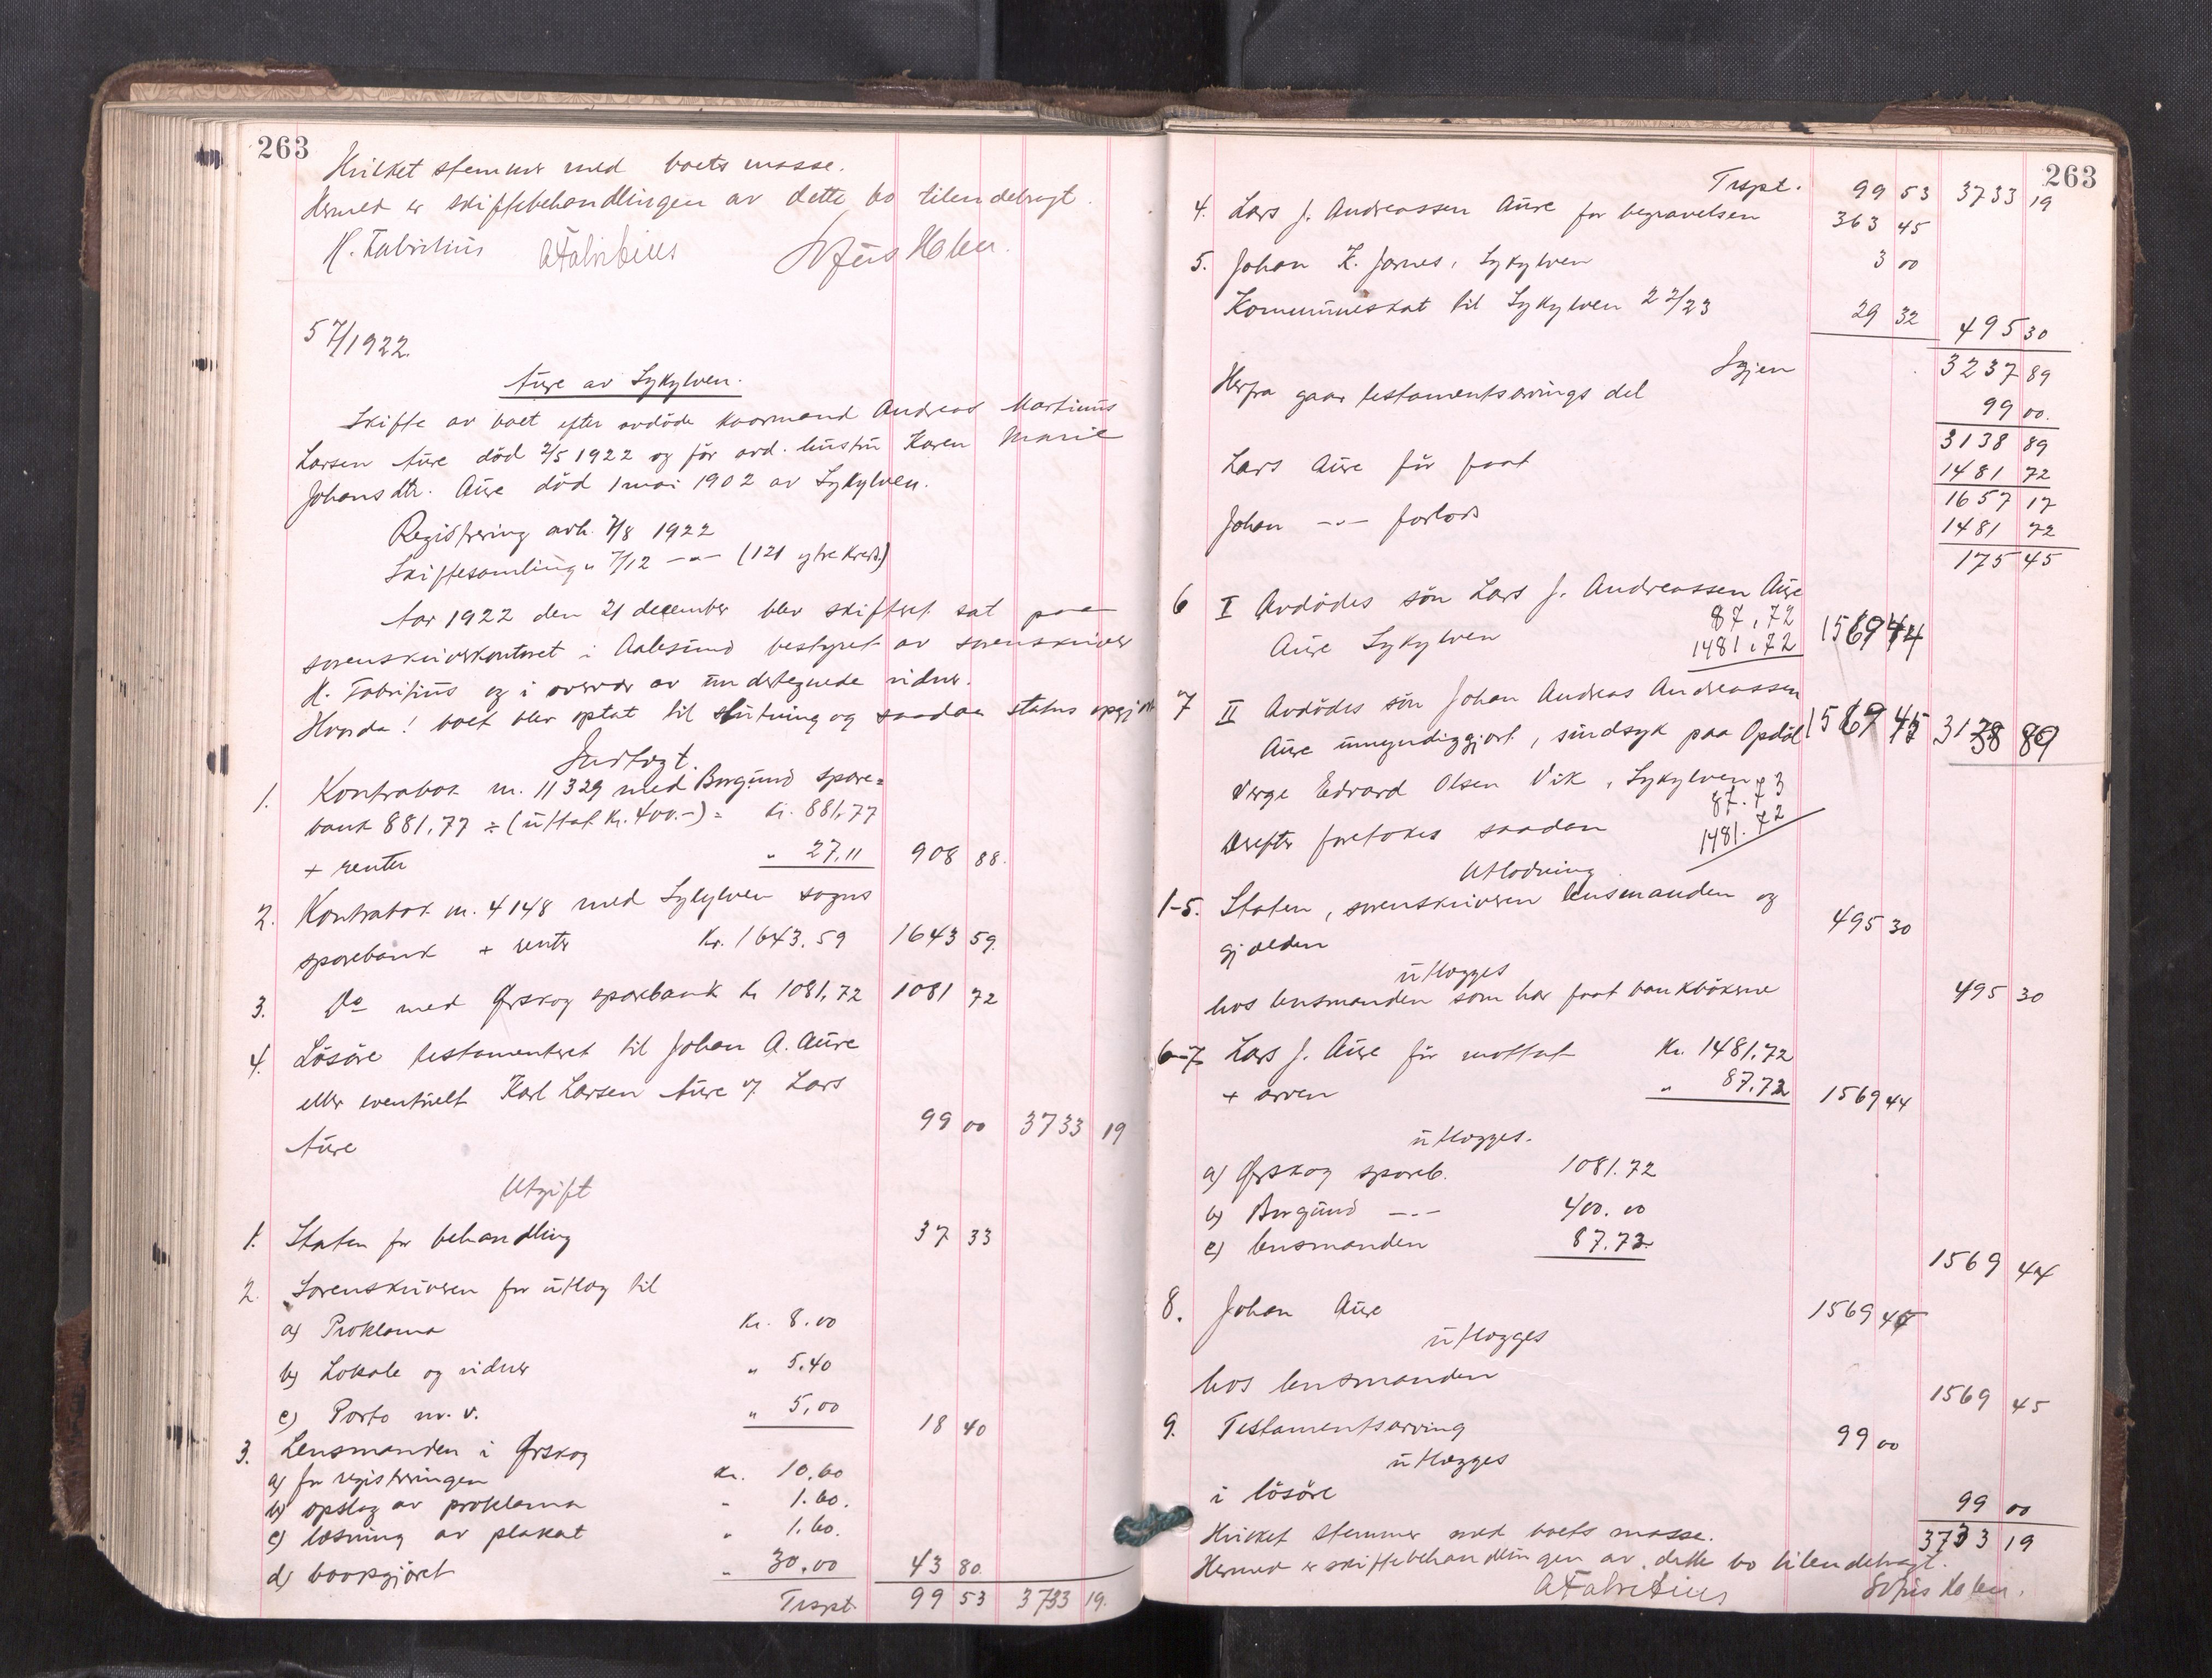 263
Hvilket stemmer med boets masse.
Hermed er skiftebehandlingen av dette bo tilendebragt.
H. Fabritius AFabritius
57/1922.
Aure av Sykylven.
Skifte av boet efter avdöde kaarmand Andreas Martinus
Larsen Aure död 2/5 1922 og för avd. hustru Karen Marie
Johansdtr. Aure död 1 mai 1902 av Sykylven.
Registrering avh. 7/8 1922
Skiftesamling " 7/12 -"- (121 ytre kreds.)
Aar 1922 den 21 december blev skifteret sat paa
sorenskriverkontoret i Aalesund bestyret av sorenskriver
H. Fabritius og i overvær av undertegnede vidner.
Hvorda! boet blev optat til slutning og saadan status opgjort
Indtægt.
1. Kontrabok nr. 11329 med Borgund spare=
bank 881,77 ÷ (uttat kr. 400.-) = kr. 881,77
+ renter " 27,11 908 88.
2. Kontrabok nr. 4148 med Sykylven sogns
sparebank + renter Kr. 1643.59 1643 59.
3. Do med Ørskog sparebank kr 1081,72 1081 72
4. Lösöre testamenteret til Johan A. Aure
eller eventuelt Karl Larsen Aure og Lars
Aure 99 00 3733 19
Utgift
1. Staten for behandling 37 33
2. Sorenskriveren for utlæg til
a) Proklama Kr. 8.00
b) Lokale og vidner " 5.40
c) Porto m. v. " 5,00 18 40
3. Lensmanden i Ørskog
a) for registreringen kr. 10.60
b) opslag av proklama " 1.60.
c) læsning av plakat " 1.60.
d) boopgjöret " 30.00 43 80.
Trspt. 99 53 3733 19.
263
Trspt. 99 53 3733 19
4. Lars J. Andreassen Aure for begravelsen 363 45
5. Johan K. Jarnes, Sykylven 3 00
Kommuneskat til Sykylven 22/23 29 32 495 30
Igjen 3237 89
Herfra gaar testamentsarvings del 99 00.
3138 89
Lars Aure för faat 1481 72
1657 17
Johan -"- forlods 1481 72
175 45
6 I Avdödes sön Lars J. Andreassen Aure
87,72
Aure Sykylven 1481,72 1569 44
7 II Avdödes sön Johan Andreas Andreassen
Aure umyndiggjort, sindsyk paa Opdöl 1569 45 3138 89
Verge Edvard Olsen Vik, Sykylven
87.73
Derefter foretokes saadan 1481.72
Utlodning
1-5. Staten, sorenskriveren lensmanden og
gjælden 495 30
utlægges
hos lensmanden som har faat bankbökerne 495 30
6-7 Lars J. Aure för mottat Kr. 1481,72
+ arven " 87,72 1569 44
utlægges.
a) Ørskog spareb. 1081.72
b) Borgund -"- 400.00
c) lensmanden 87.72
1569 44
8. Johan Aure 1569 45
utlægges
hos lensmanden 1569 45
9. Testamentsarving 99 00
utlægges
i lösöre 99 00
Hvilket stemmer med boets masse. 3733 19
Hermed er skiftebehandlingen av dette bo tilendebragt.
AFabritius